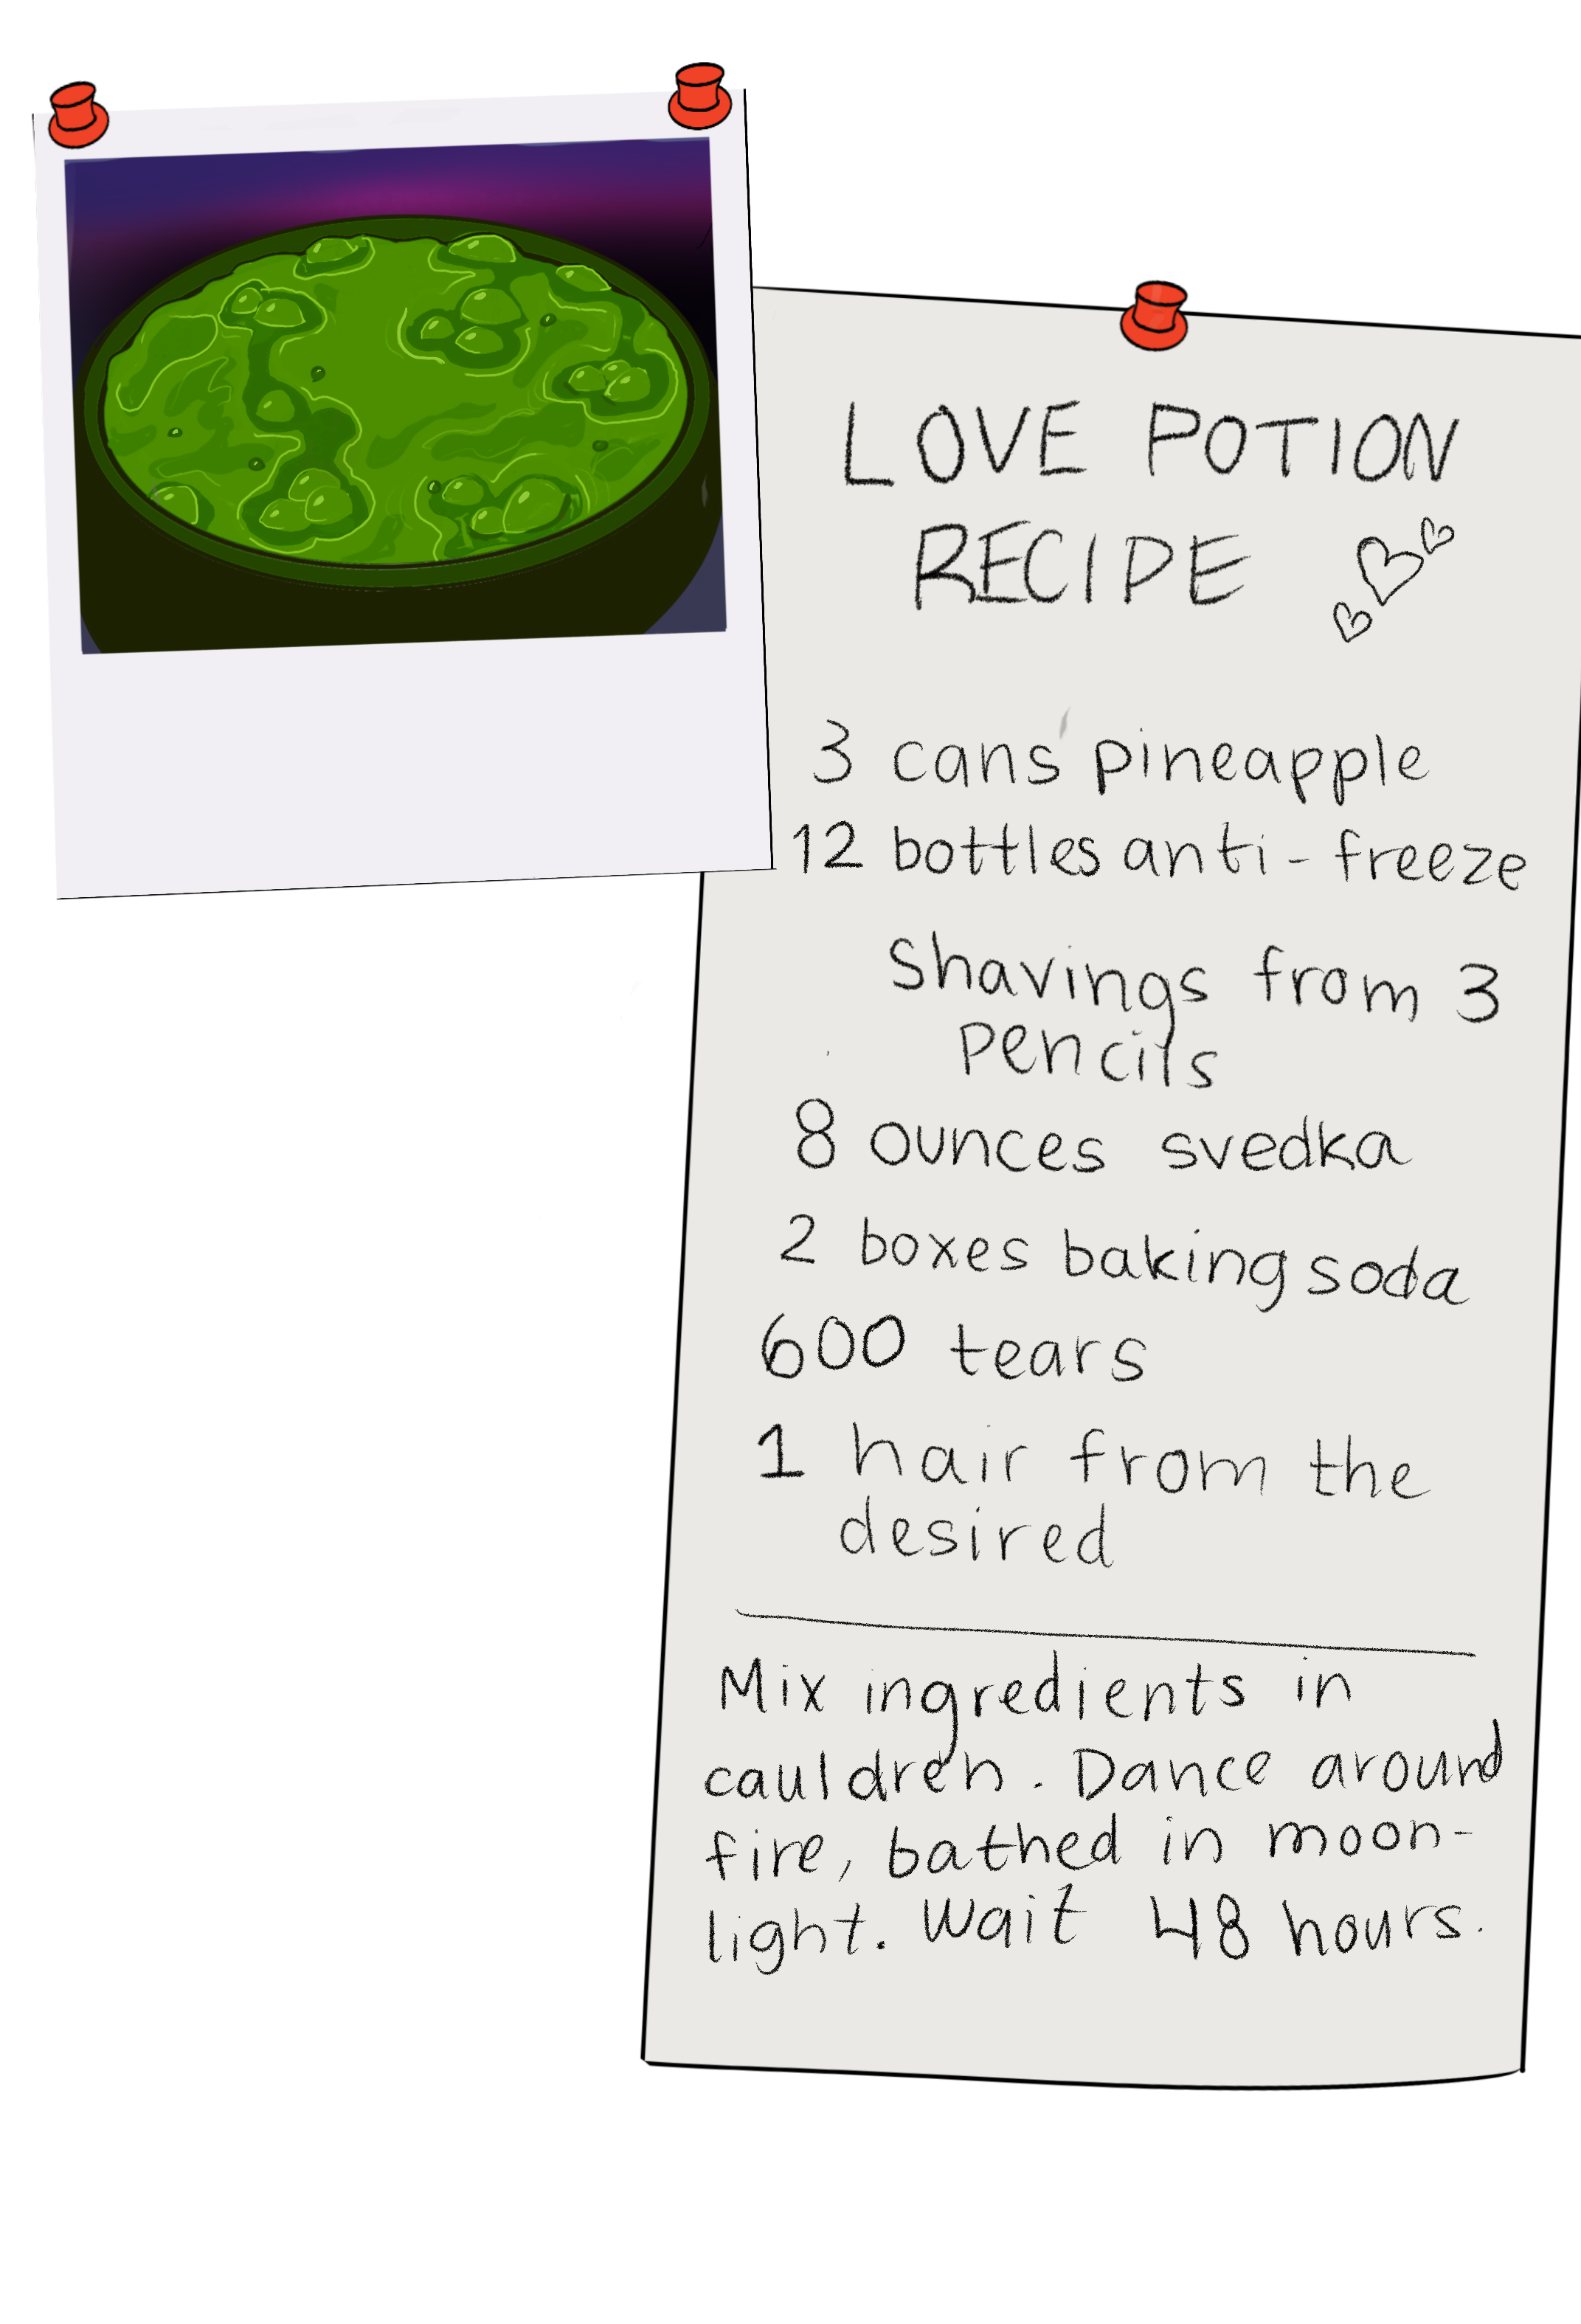 LOVE POTION
RECIPE
3 cans pineapple
12 bottles anti-freeze
Shavings from 3
pencils
8 ounces svedka
2 boxes baking soda
600 tears
1 hair from the
desired
Mix ingredients in
cauldren. Dance around
fire, bathed in moon-
light. Wait 48 hours.